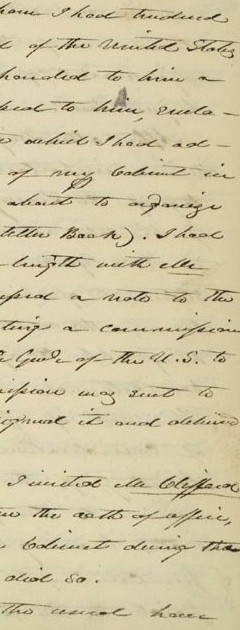 whom I had tendered
l of the United States
handed to him a
him, rela-
which I had ad-
of my Cabinet in
about to organize
Letter Book). I had
length with Mr
a note to the
ting a commission
Genl of the U.S. to
was sent to
signed it and deliver
I invited Mr Clifford
the oath of office,
Cabinet during the
did so.
the usual hour